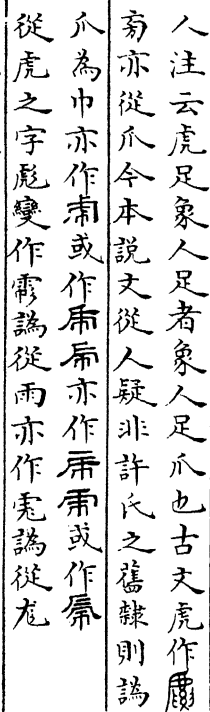 人注云虎足象人足者象人足爪也古文虎作
亦從爪今本說文從人疑非許氏之舊隸則譌
爪為巾亦作或作亦作或作
從虎之字彪變作譌從雨亦作譌從